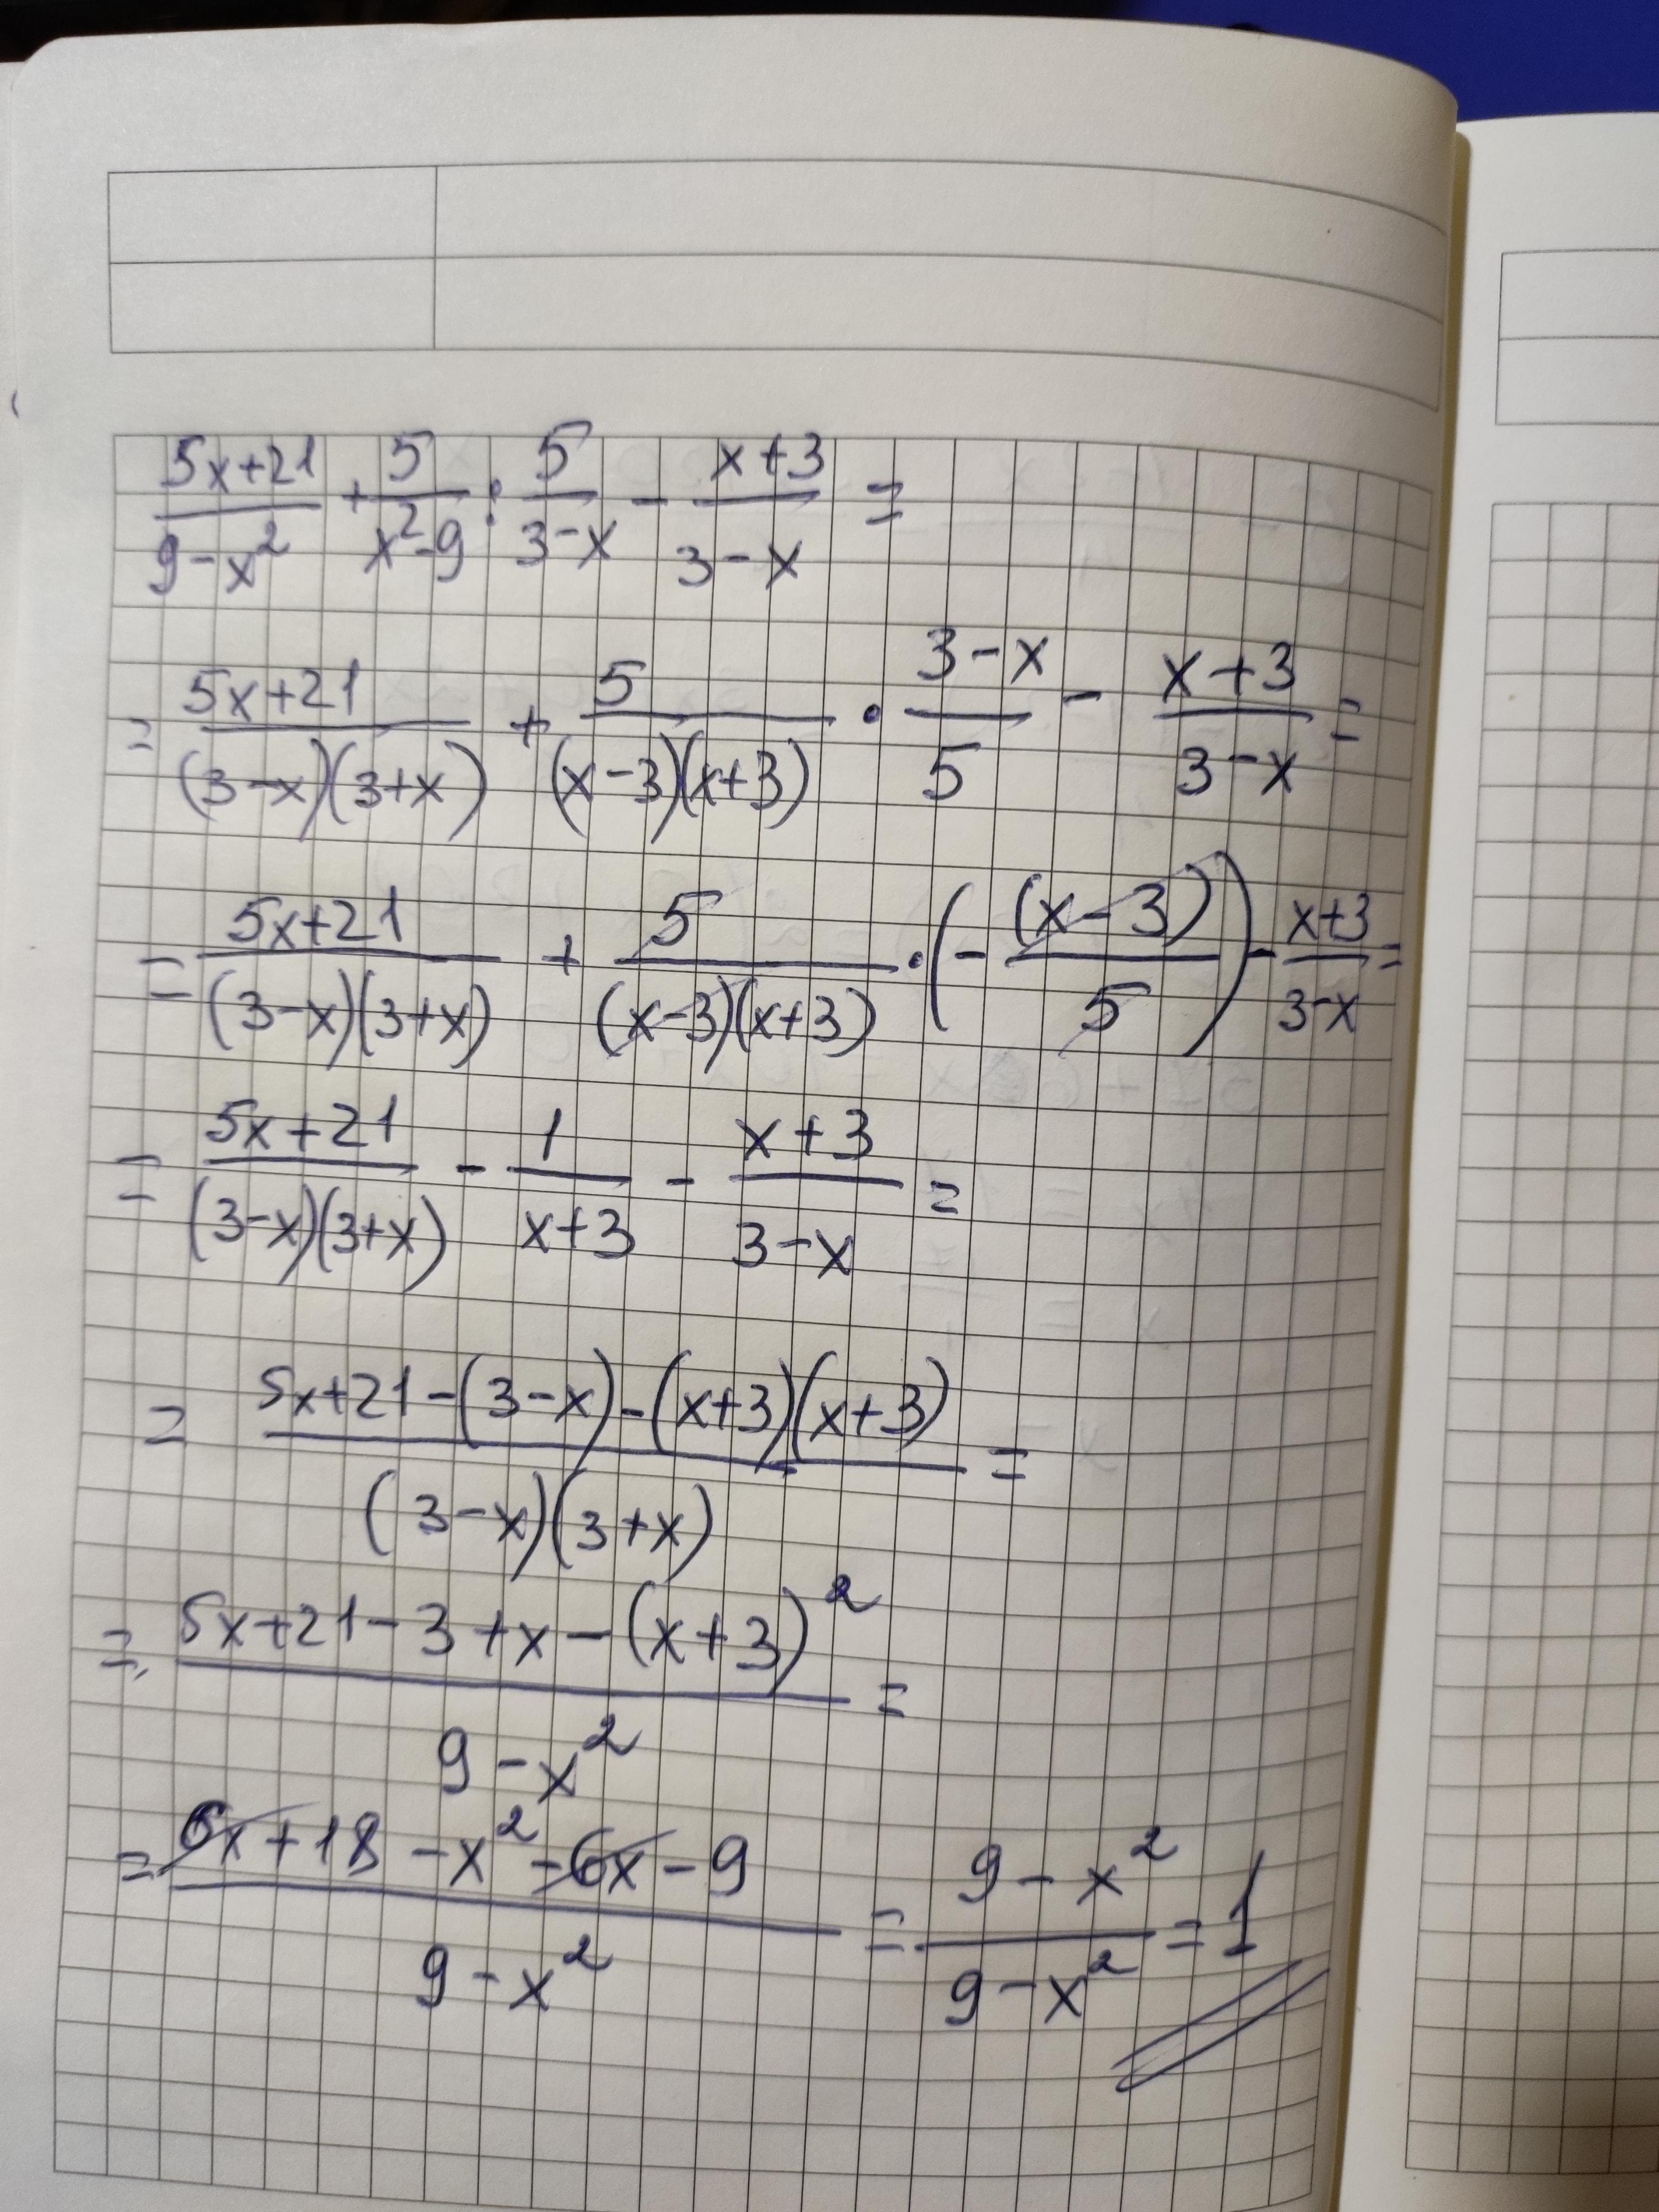 (5x+21)/(9-x²) + 5/(x²-9) : 5/(3-x) - (x+3)/(3-x) =
= (5x+21)/((3-x)(3+x)) + 5/((x-3)(x+3)) · (3-x)/5 - (x+3)/(3-x) =
= (5x+21)/((3-x)(3+x)) + 5/((x-3)(x+3)) · (-(x-3)/5) - (x+3)/(3-x) =
= (5x+21)/((3-x)(3+x)) - 1/(x+3) - (x+3)/(3-x) =
= (5x+21-(3-x)-(x+3)(x+3))/((3-x)(3+x)) =
= (5x+21-3+x-(x+3)²)/(9-x²) =
= (6x+18-x²-6x-9)/(9-x²) = (9-x²)/(9-x²) = 1